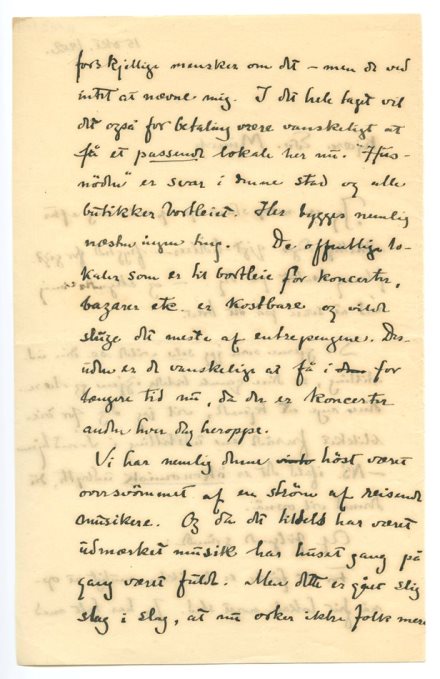 forskjellige mennesker om det – men de ved
intet at nævne mig. I det hele taget vil
det også for betaling være vanskeligt at
få et passende lokale her nu. "Hus-
nöden" er svær i denne stad og alle
butikker bortleiet. Her bygges nemlig
næsten ingen ting. De offentlige lo-
kaler som er til bortleie for koncerter,
bazarer etc er kostbare og vilde
sluge det meste af entrepengene. Des-
uden er de vanskelige at få i for
længere tid nu, da der er koncerter
anden hver dag heroppe.
Vi har nemlig denne höst været
oversvömmet af en ström af reisende
musikere. Og da det tildels har været
udmærket musik har huset gang på
gang været fuldt. Men dette er gået slig
slag i slag, at nu orker ikke folk mere